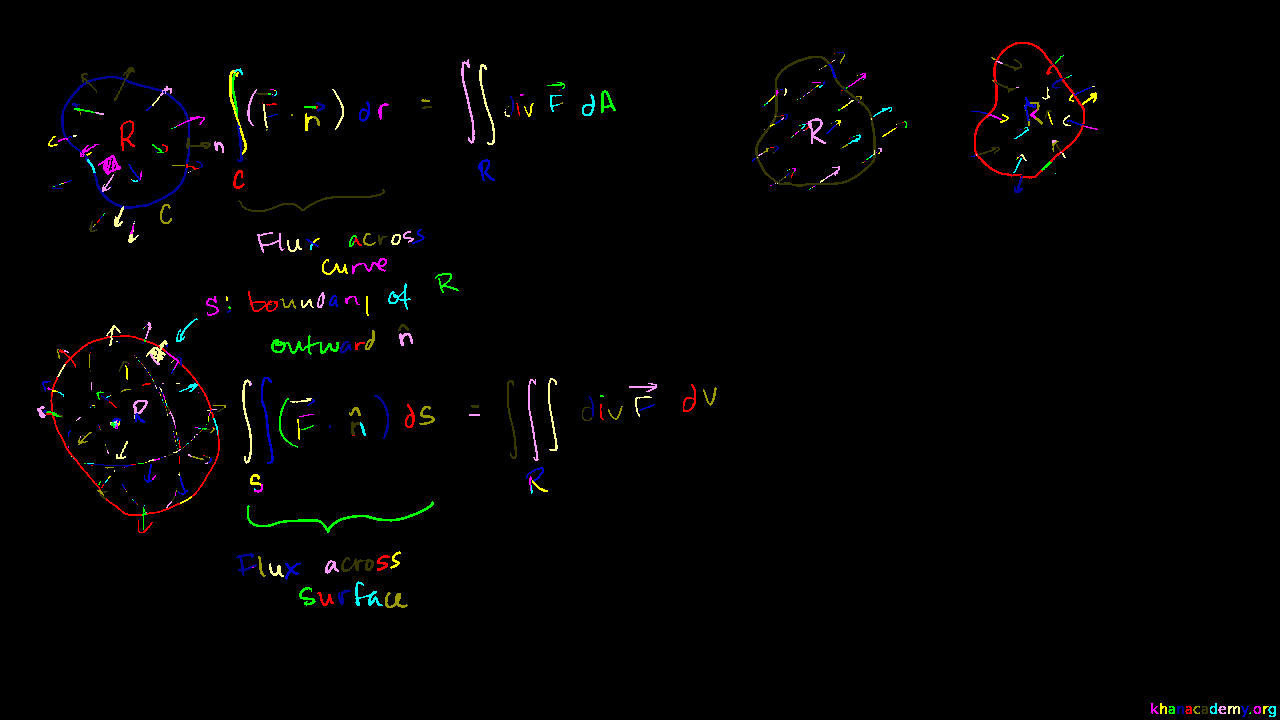 R
n
C
∫_C (F⃗ · n⃗) dr = ∬_R div F⃗ dA
R
R₁
Flux across
curve
S: boundary of R
outward n̂
R
∬_S (F⃗ · n̂) dS = ∭_R div F⃗ dV
Flux across
surface
khanacademy.org